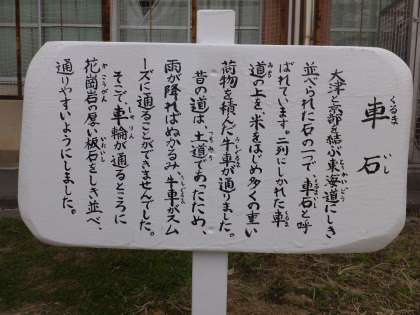 車石
くるまいし
大津と京都を結ぶ東海道にしき
並べられた石の一つで、車石と呼
ばれています。二列にしかれた車
道の上を、米をはじめ多くの重い
荷物を積んだ牛車が通りました。
昔の道は、土道であったため、
雨が降ればぬかるみ、牛車がスム
ーズに通ることができませんでした。
そこで、車輪が通るところに
花崗岩の厚い板石をしき並べ、
通りやすいようにしました。